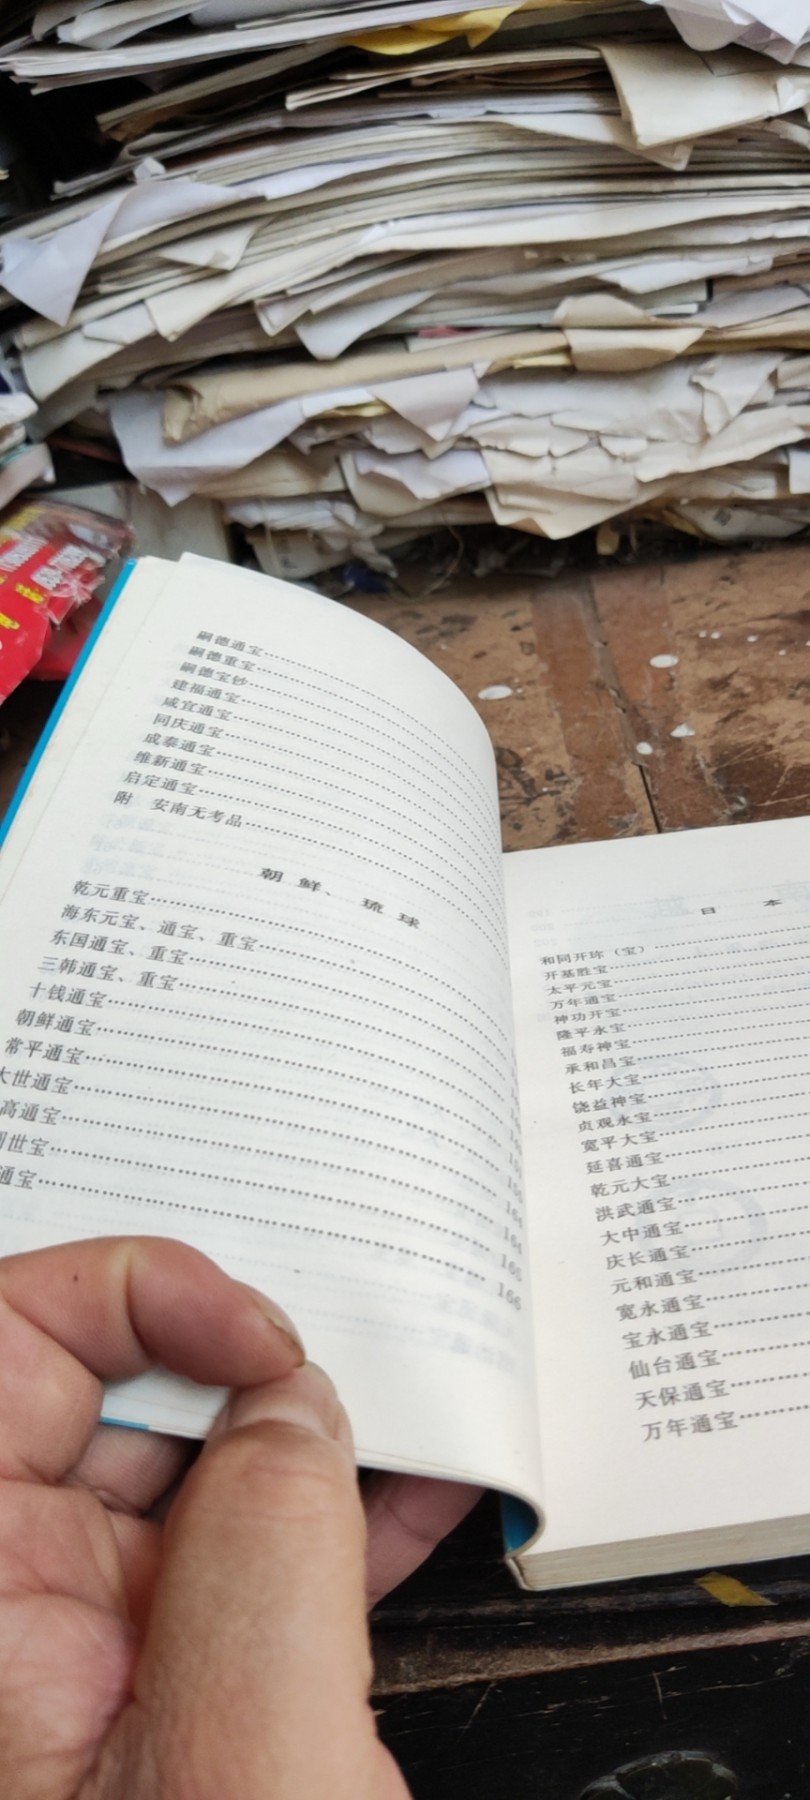 嗣德通宝
嗣德重宝
嗣德宝钞
建福通宝
咸宜通宝
同庆通宝
成泰通宝
维新通宝
启定通宝
附 安南无考品
朝 鲜、 琉 球
乾元重宝
海东元宝、通宝、重宝
东国通宝、重宝
三韩通宝、重宝
十钱通宝
朝鲜通宝
常平通宝
大世通宝
高通宝
世宝 165
通宝 166
日 本
和同开珎（宝）
开基胜宝
太平元宝
万年通宝
神功开宝
隆平永宝
福寿神宝
承和昌宝
长年大宝
饶益神宝
贞观永宝
宽平大宝
延喜通宝
乾元大宝
洪武通宝
大中通宝
庆长通宝
元和通宝
宽永通宝
宝永通宝
仙台通宝
天保通宝
万年通宝